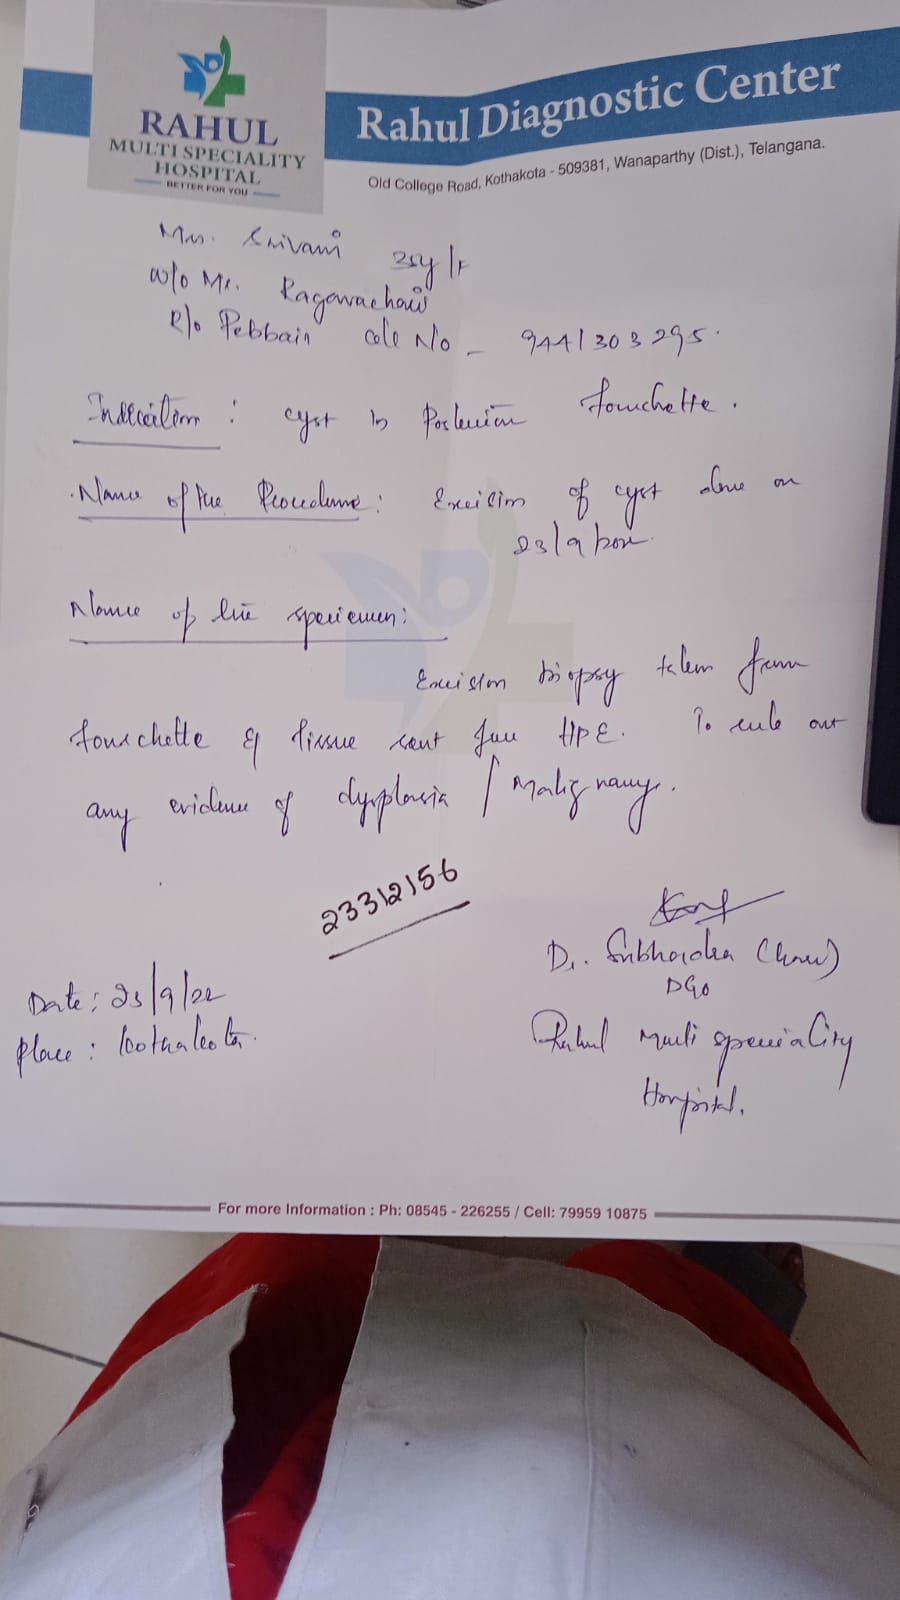 RAHUL
MULTI SPECIALITY
HOSPITAL
BETTER FOR YOU
Rahul Diagnostic Center
Old College Road, Kothakota - 509381, Wanaparthy (Dist.), Telangana.
Mrs. Srivani 35y/F
w/o Mr. Ragavachari
R/o Pebbair Cell No - 9441303295.
Indication : cyst in Posterior fourchette.
Name of the Procedure : Excision of cyst done on
23/9
Name of the specimen:
Excision biopsy taken from
fourchette & tissue sent for HPE. To rule out
any evidence of dysplasia / Malignancy.
23312156
Dr. Subhadra
DGO
Date : 23/9/22
Place : Kothakota.
Rahul Multi speciality
Hospital.
For more Information : Ph: 08545 - 226255 / Cell: 79959 10875